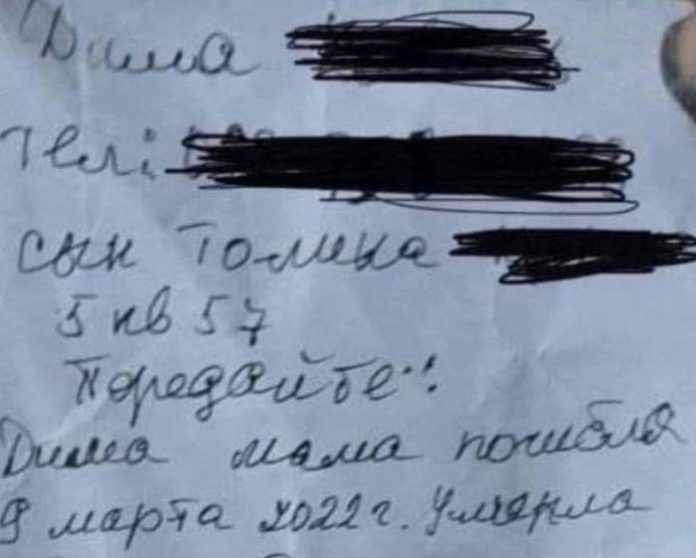 Дима
Тел:
сын Толика
5 кв 57
Передайте:
Дима мама погибла
9 марта 2022 г. Умерла